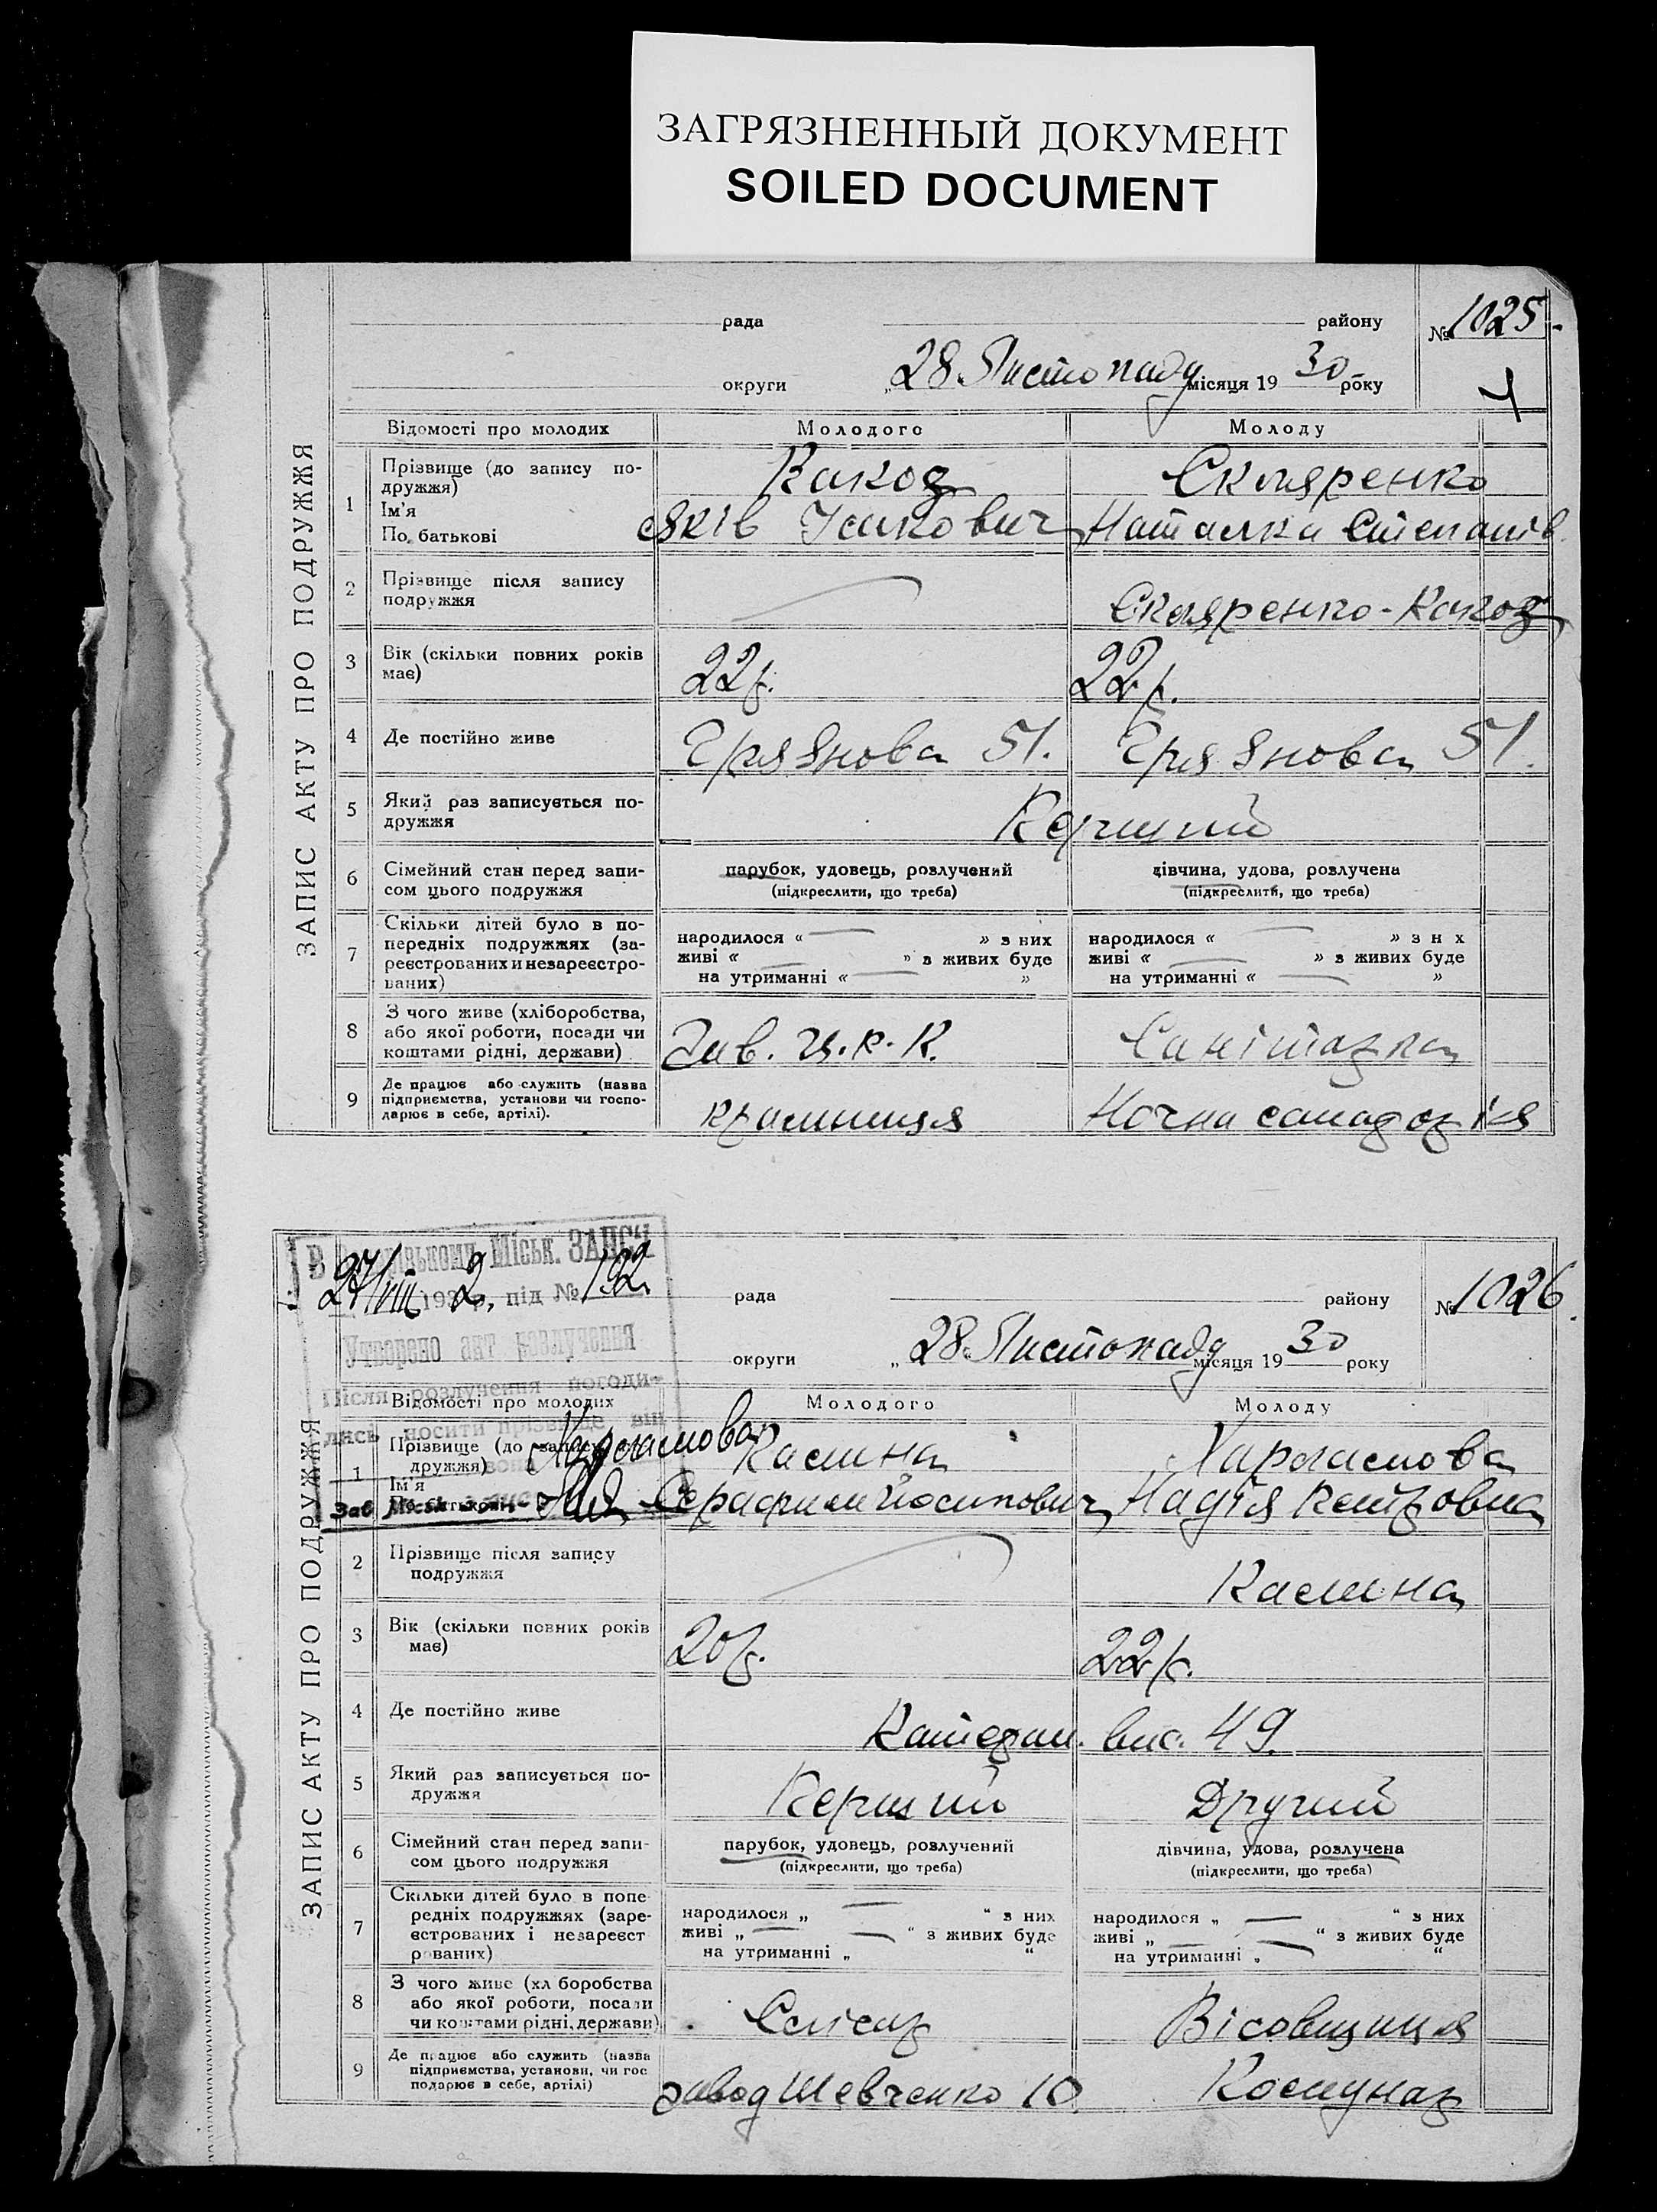 ЗАГРЯЗНЕННЫЙ ДОКУМЕНТ
SOILED DOCUMENT
ЗАПИС АКТУ ПРО ПОДРУЖЖЯ
рада району № 1025
округи „28 Листопаду місяця 19 30 року
Відомості про молодих Молодого Молоду
1 Прізвище (до запису по-
дружжя) Скляренко
Ім'я
По батькові Яків Ісакович Наталка Степанів
2 Прізвище після запису
подружжя Скляренко-
3 Вік (скільки повних років
має) 22 р. 22 р.
4 Де постійно живе 51. 51.
5 Який раз записується по-
дружжя Перший
6 Сімейний стан перед запи-
сом цього подружжя
парубок, удовець, розлучений
(підкреслити, що треба)
дівчина, удова, розлучена
(підкреслити, що треба)
7 Скільки дітей було в по-
передніх подружжях (за-
реєстрованих и незареєстро-
ваних)
народилося « » з них
живі « » з живих буде
на утриманні « »
народилося « » з н х
живі « » з живих буде
на утриманні « »
8 З чого живе (хліборобства,
або якої роботи, посади чи
коштами рідні, держави) Зав. Санітарка
9 Де працює або служить (назва
підприємства, установи чи госпо-
дарює в себе, артілі).
крамниця Ночна
ЗАПИС АКТУ ПРО ПОДРУЖЖЯ
Міськ. ЗАГСі
27/VIII 193 2 р. під № 192
Утворено акт розлучення
Після розлучення погоди-
лись носити прізвище він
вона Харламова
Зав Міськ
рада району № 1026.
округи „28 Листопаду місяця 19 30 року
Відомості про молодих Молодого Молоду
1 Прізвище (до запису
дружжя) Харламова
Ім'я
По батькові Серафим Йосипович Надія Петровна
2 Прізвище після запису
подружжя
3 Вік (скільки повних років
має) 20 р. 22 р.
4 Де постійно живе вис. 49.
5 Який раз записується по-
дружжя Перший Другий
6 Сімейний стан перед запи-
сом цього подружжя
парубок, удовець, розлучений
(підкреслити, що треба)
дівчина, удова, розлучена
(підкреслити, що треба)
7 Скільки дітей було в попе
редніх подружжях (заре-
єстрованих і незареєст
рованих)
народилося „ “ з них
живі „ “ з живих буде
на утриманні „ “
народилося „ “ з них
живі „ “ з живих буде
на утриманні „ “
8 З чого живе (хл боробства
або якої роботи, посади
чи коштами рідні, держави) Слюсар Вісовщиця
9 Де працює або служить (назва
підприємства, установи, чи гос
подарює в себе, артілі)
завод Шевченко 10 Комунар